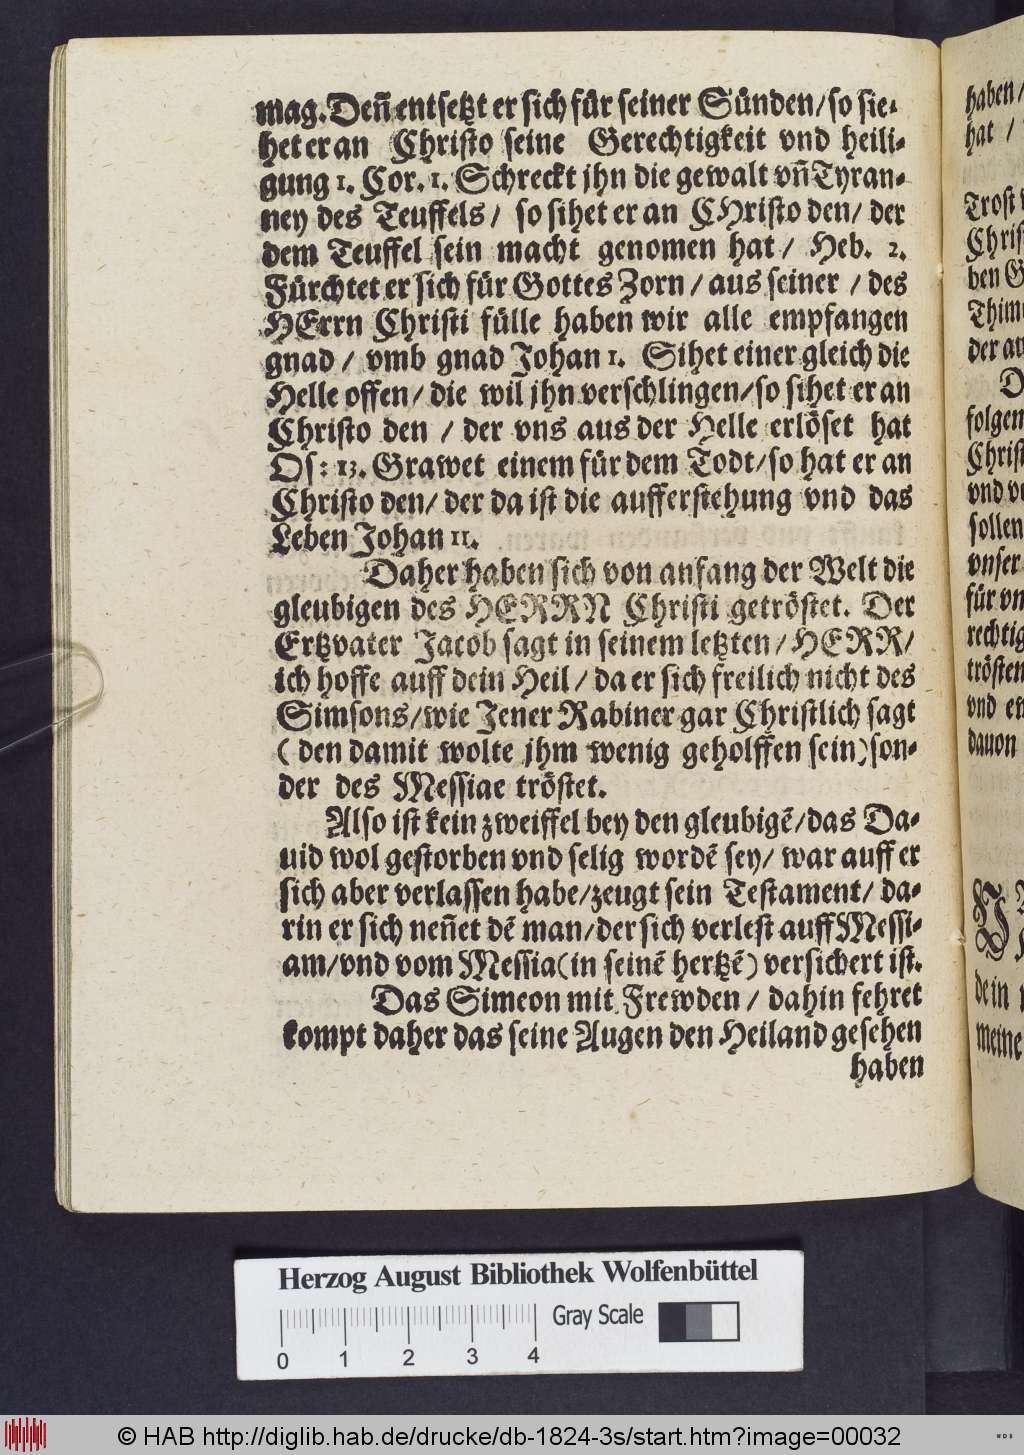 mag. Den̄ entsetzt er sich für seiner Sünden/ so sie-
het er an Christo seine Gerechtigkeit vnd heili-
gung 1. Cor. 1. Schreckt jhn die gewalt vn̄ Tyran-
ney des Teuffels/ so sihet er an CHristo den/ der
dem Teuffel sein macht genomen hat/ Heb. 2.
Fürchtet er sich für Gottes Zorn/ aus seiner/ des
HErrn Christi fülle haben wir alle empfangen
gnad/ vmb gnad Johan 1. Sihet einer gleich die
Helle offen/ die wil jhn verschlingen/ so sihet er an
Christo den/ der vns aus der Helle erlöset hat
Os: 13. Grawet einem für dem Todt/ so hat er an
Christo den/ der da ist die aufferstehung vnd das
Leben Johan 11.
Daher haben sich von anfang der Welt die
gleubigen des HERRN Christi getröstet. Der
Ertzvater Jacob sagt in seinem letzten/ HERR/
ich hoffe auff dein Heil/ da er sich freilich nicht des
Simsons/ wie Jener Rabiner gar Christlich sagt
(den damit wolte jhm wenig geholffen sein) son-
der des Messiae tröstet.
Also ist kein zweiffel bey den gleubigē/ das Da-
uid wol gestorben vnd selig wordē sey/ war auff er
sich aber verlassen habe/ zeugt sein Testament/ da-
rin er sich nen̄et dē man/ der sich verlest auff Messi-
am/ vnd vom Messia (in seinē hertzē) versichert ist.
Das Simeon mit Frewden/ dahin fehret
kompt daher das seine Augen den Heiland gesehen
haben
haben/
hat /
Trost
Christ
ben G
Thim
der au
D
folgen
Christ
vnd
sollen
vnser
für vn
rechtig
trösten
vnd
dauon
dein
meine
Herzog August Bibliothek Wolfenbüttel
0 1 2 3 4 Gray Scale
© HAB http://diglib.hab.de/drucke/db-1824-3s/start.htm?image=00032